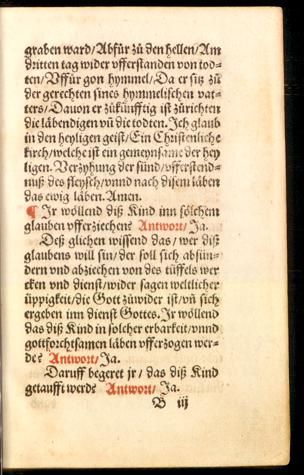 graben ward/Abfůr zů den hellen/Am
dritten tag wider vfferstanden von tod⸗
ten/Vffůr gon hymmel/Da er sitz zů
der gerechten sines hymmelischen vat⸗
ters/Dauon er zůkünfftig ist zůrichten
die läbendigen vn̄ die todten. Ich glaub
in den heyligen geist/Ein Christenliche
kirch/welche ist ein gemeynsame der hey
ligen. Verzyhung der sünd/vfferstend⸗
nuß des fleysch/vnnd nach disem läben
das ewig läben. Amen.
¶ Jr wöllend diß Kind inn sölchem
glauben vfferziechen? Antwort/Ja.
Deß glichen wissend das/wer diß
glaubens will sin/der soll sich absün⸗
dern vnd abziechen von des tüffels wer
cken vnd dienst/wider sagen weltlicher
üppigkeit/die Gott zůwider ist/vn̄ sich
ergeben inn dienst Gottes. Jr wöllend
das diß Kind in solcher erbarkeit/vnnd
gottforchtsamen läben vfferzogen wer⸗
de? Antwort/Ja.
Daruff begeret jr/das diß Kind
getaufft werde? Antwort/Ja.
B iij